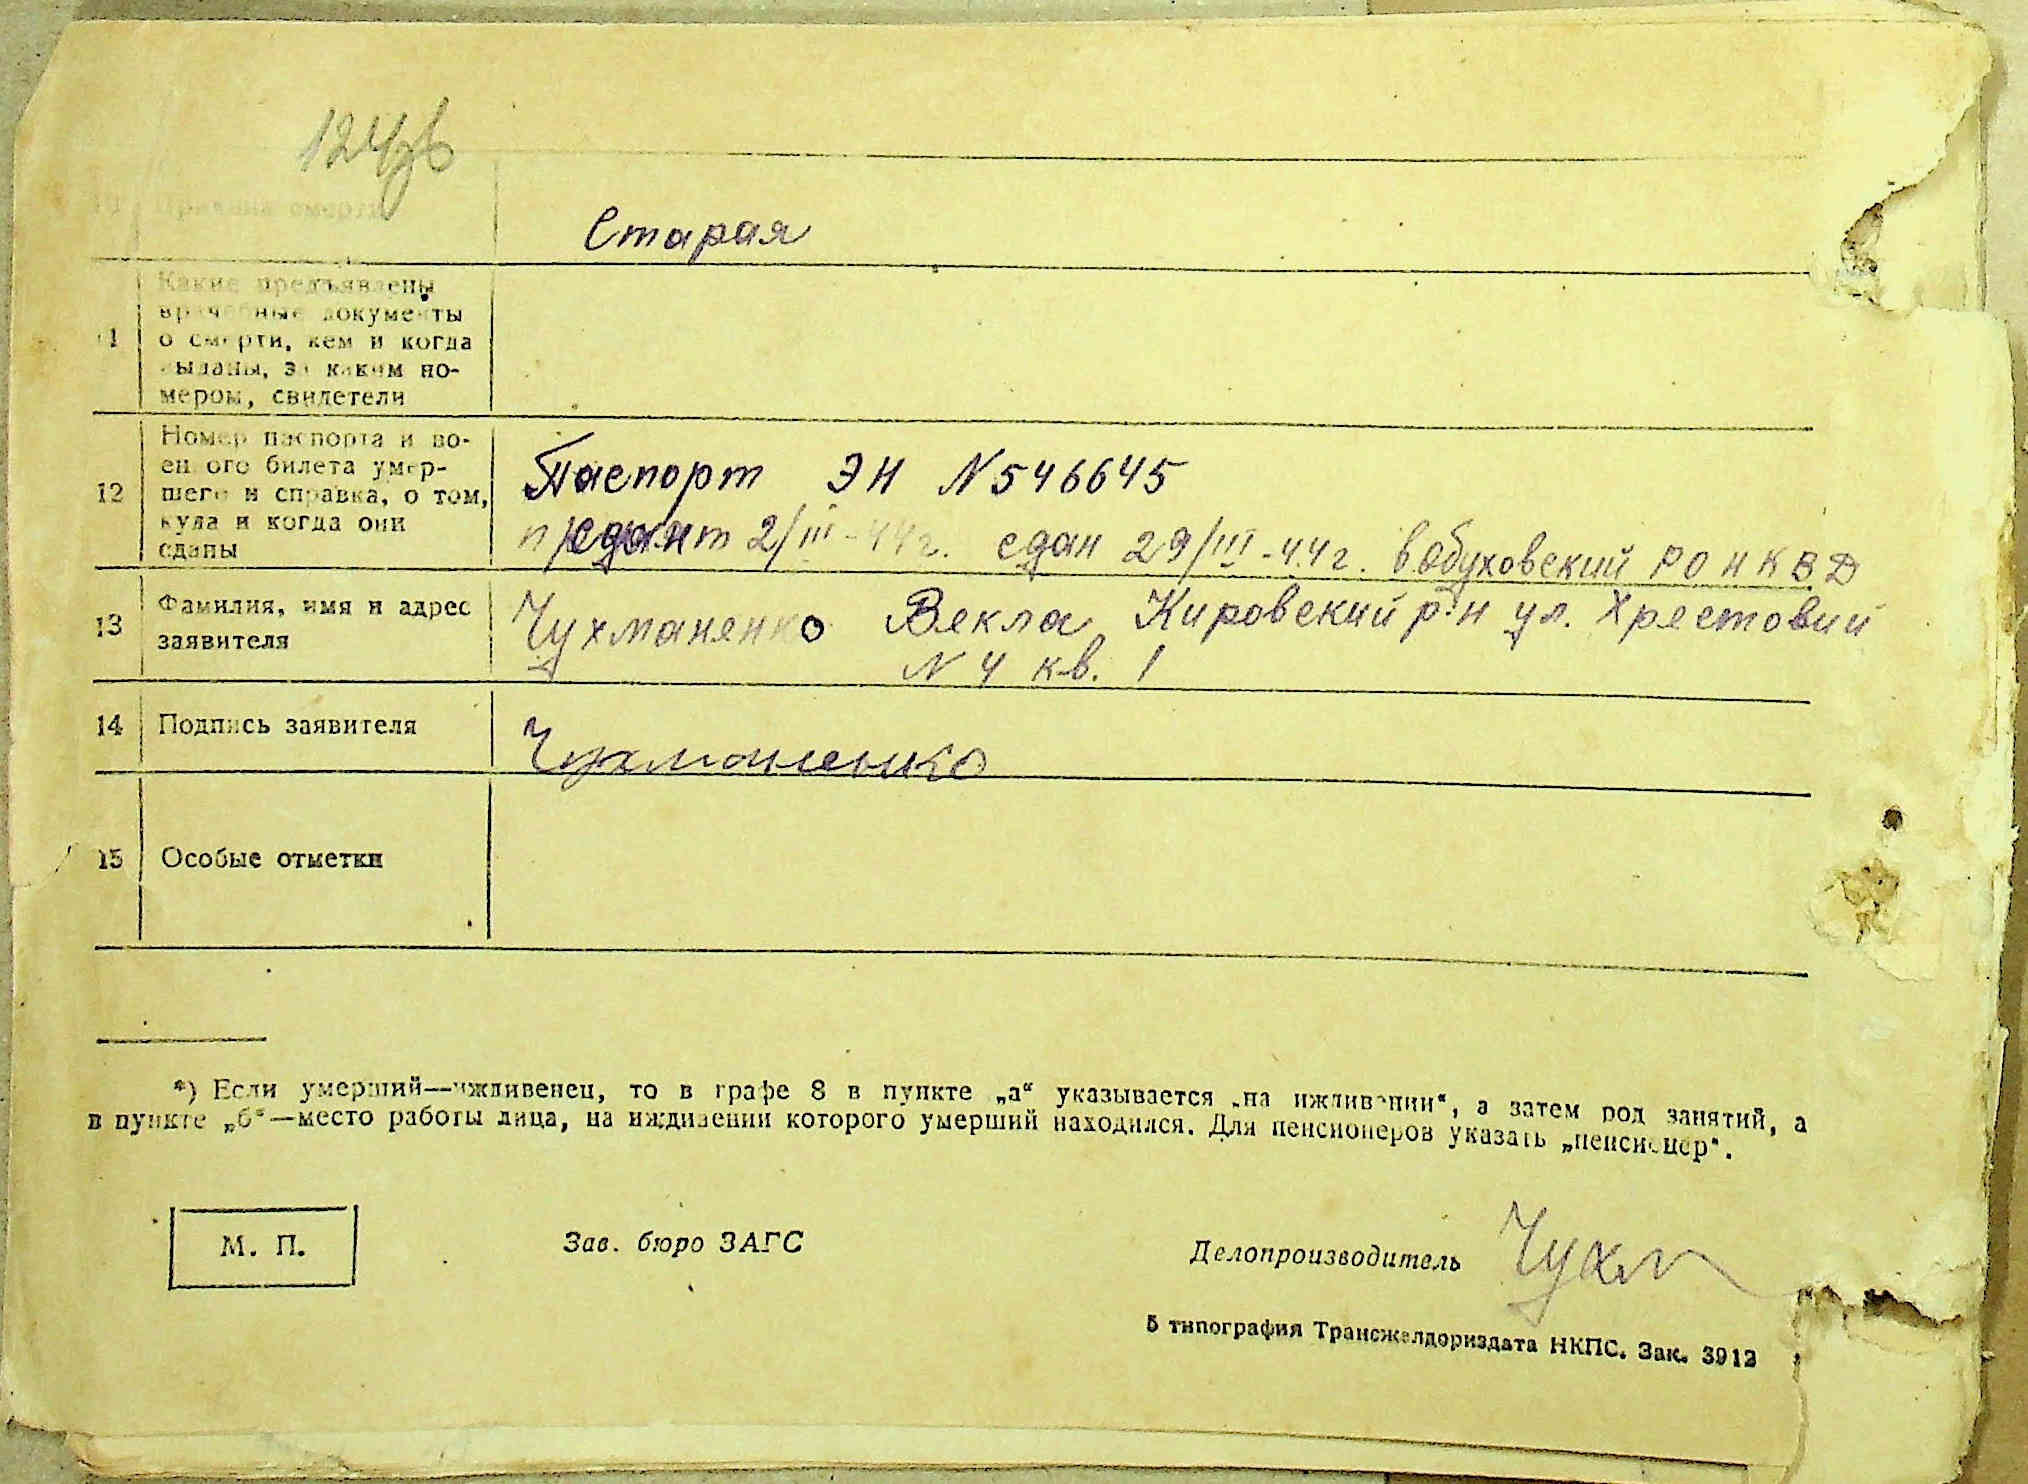 124
10 Причина смерти
Старая
11
Какие предъявлены
врачебные документы
о смерти, кем и когда
выданы, за каким но-
мером, свидетели
12
Номер паспорта и во-
енного билета умер-
шего и справка, о том,
куда и когда они
сданы
Паспорт ЭН N 546645
2/III-44г. сдан 29/III-44г. в Обуховский РО НКВД
13
Фамилия, имя и адрес
заявителя
Чухманенко Векла Кировский р-н ул. Хрестовий
N 4 кв. 1
14 Подпись заявителя
Чухманенко
15 Особые отметки
*) Если умерший—иждивенец, то в графе 8 в пункте „а“ указывается „на иждивении“, а затем род занятий, а
в пункте „б“—место работы лица, на иждивении которого умерший находился. Для пенсионеров указать „пенсионер“.
М. П. Зав. бюро ЗАГС Делопроизводитель
5 типография Трансжелдориздата НКПС. Зак. 3912